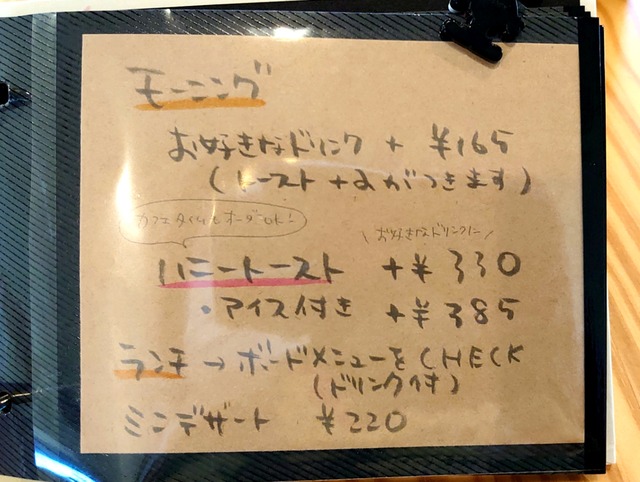 モーニング
お好きなドリンク + ¥165
(トースト+αがつきます)
カフェタイムもオーダーOK!
\お好きなドリンクに/
ハニートースト +¥330
・アイス付き +¥385
ランチ → ボードメニューをCHECK
(ドリンク付)
ミニデザート ¥220